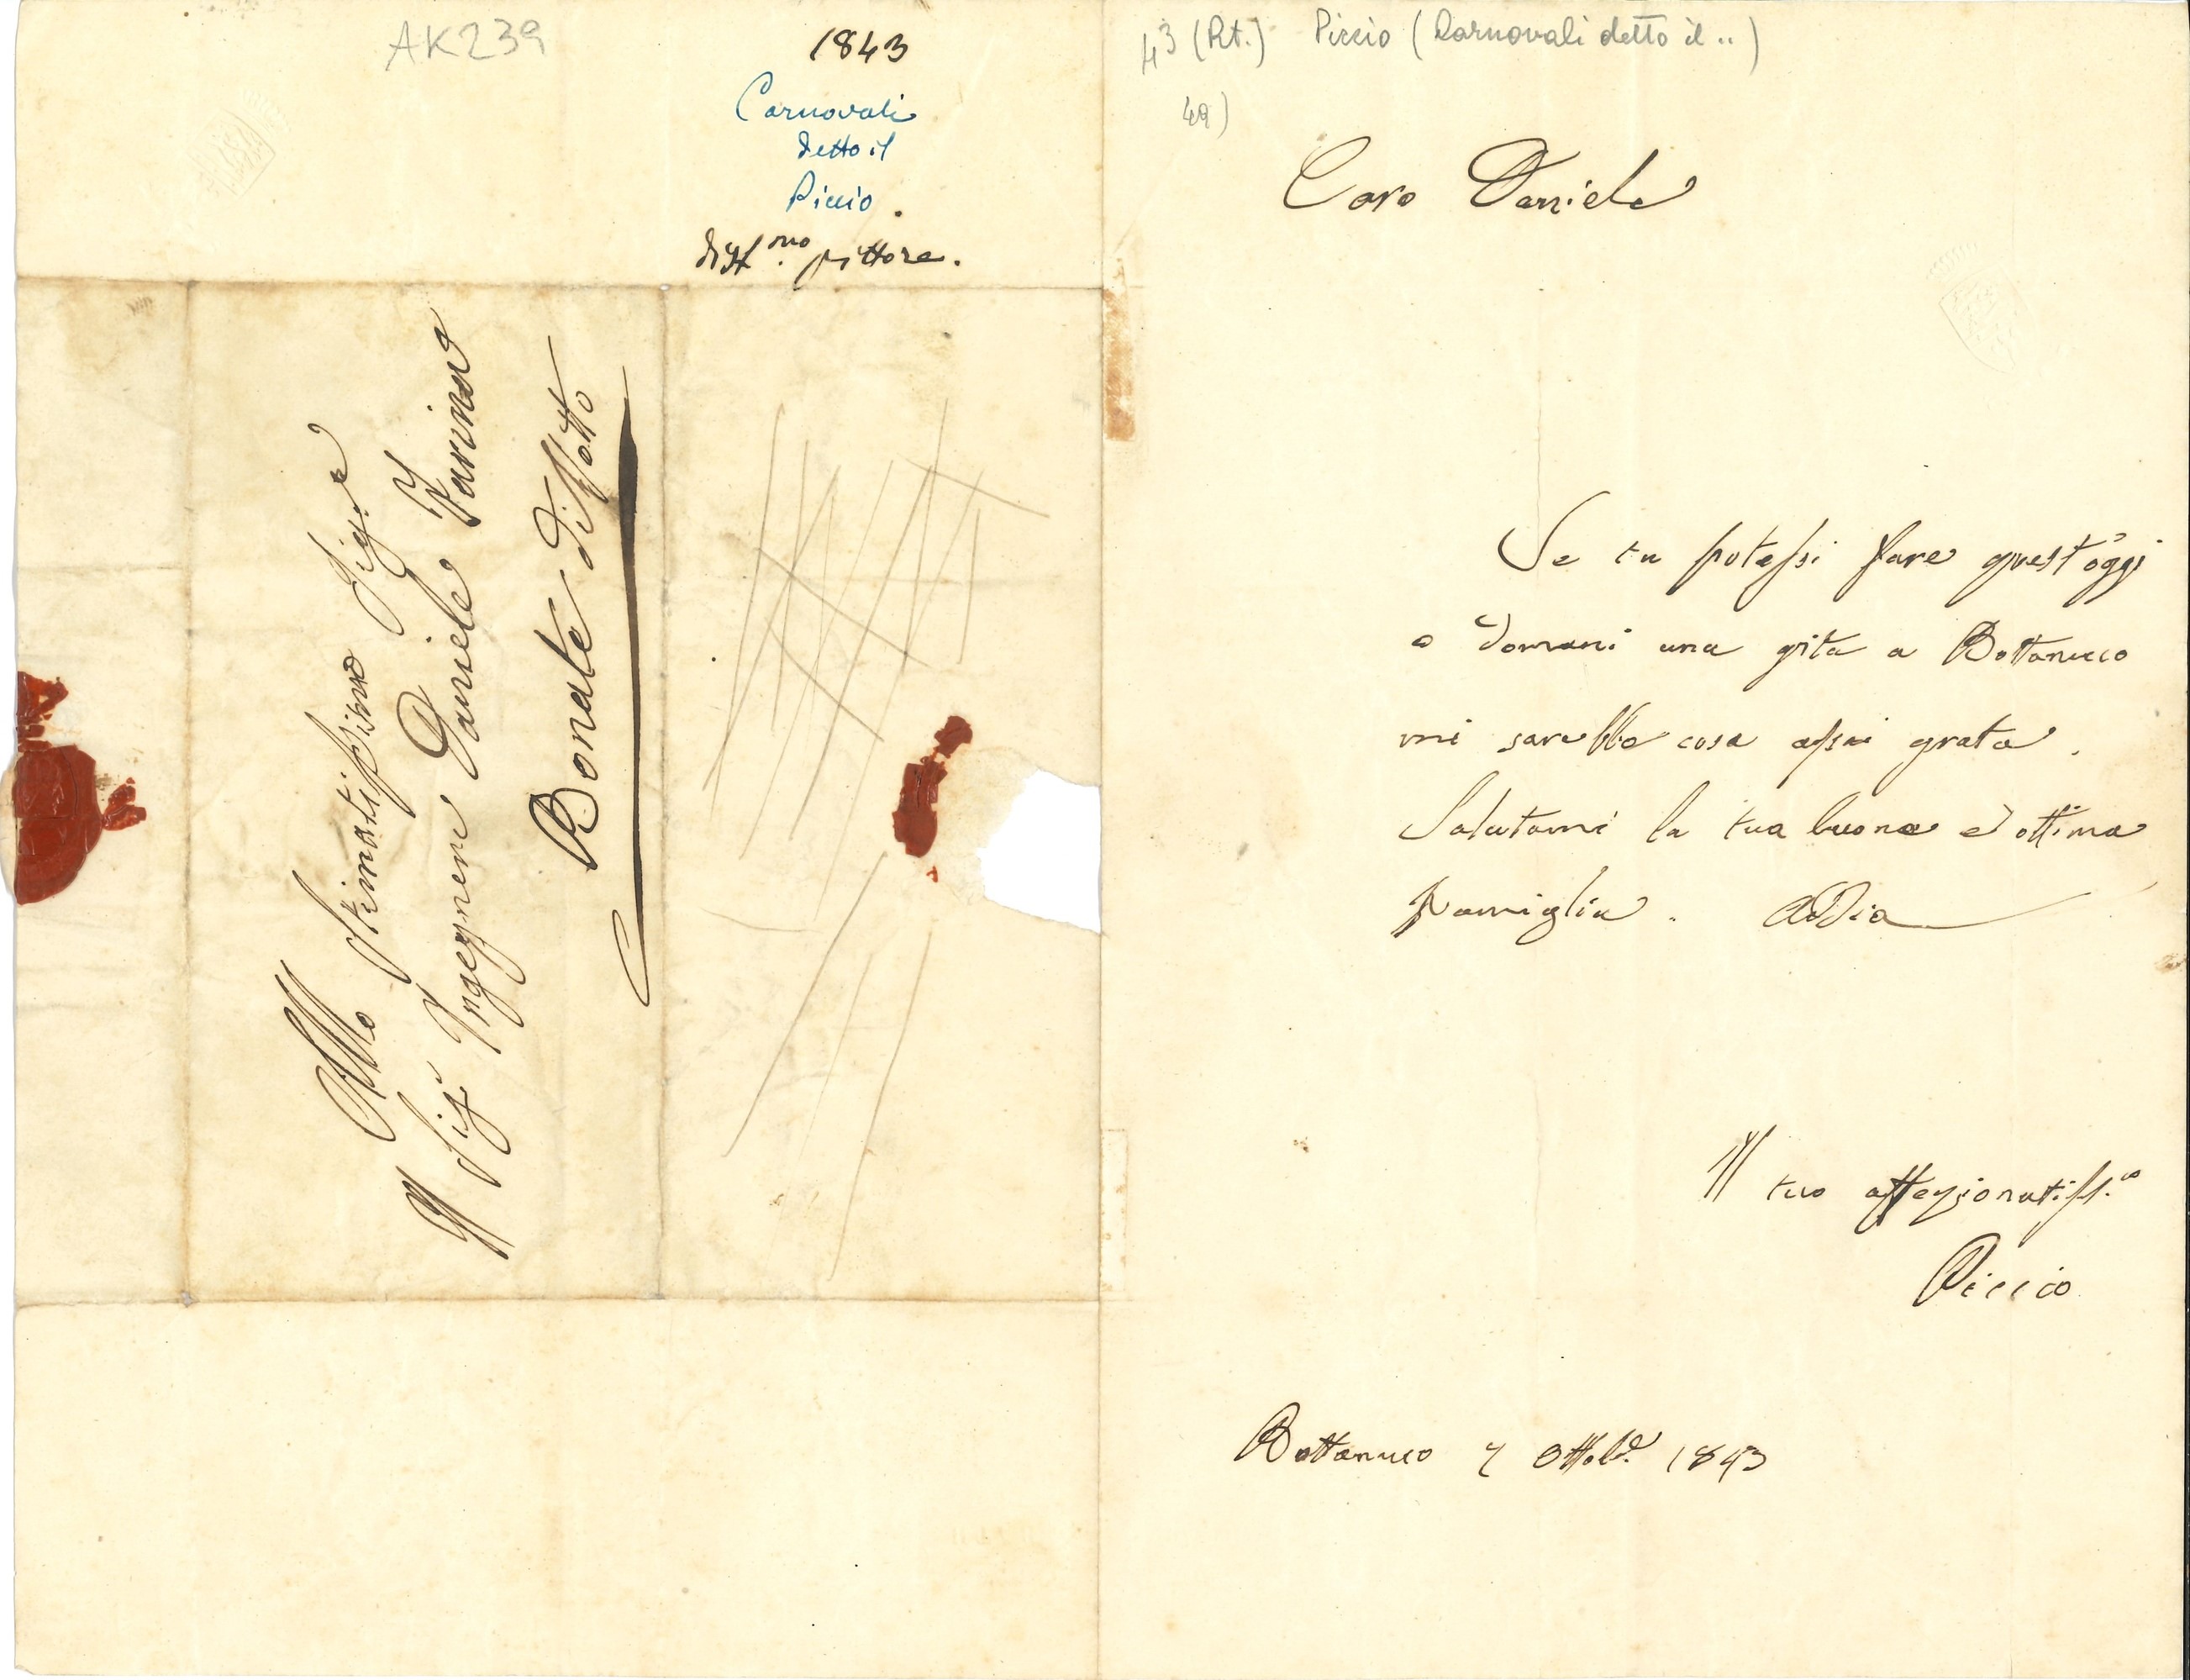 AK239
1843
Carnovali
detto il
Piccio.
dist.mo pittore.
Allo Stimatissimo Sig.e
Il Sig.r Ingegnere Daniele Farina
Bonate di Sotto
43 (Rt.) Piccio (Carnovali detto il ..)
49)
Caro Daniele
Se tu potessi fare quest'oggi
o domani una gita a Bottanuco
mi sarebbe cosa assai grata.
Salutami la tua buona ed ottima
famiglia. Addio
Il tuo affezionatiss.o
Piccio
Bottanuco 7 Ottob.e 1843